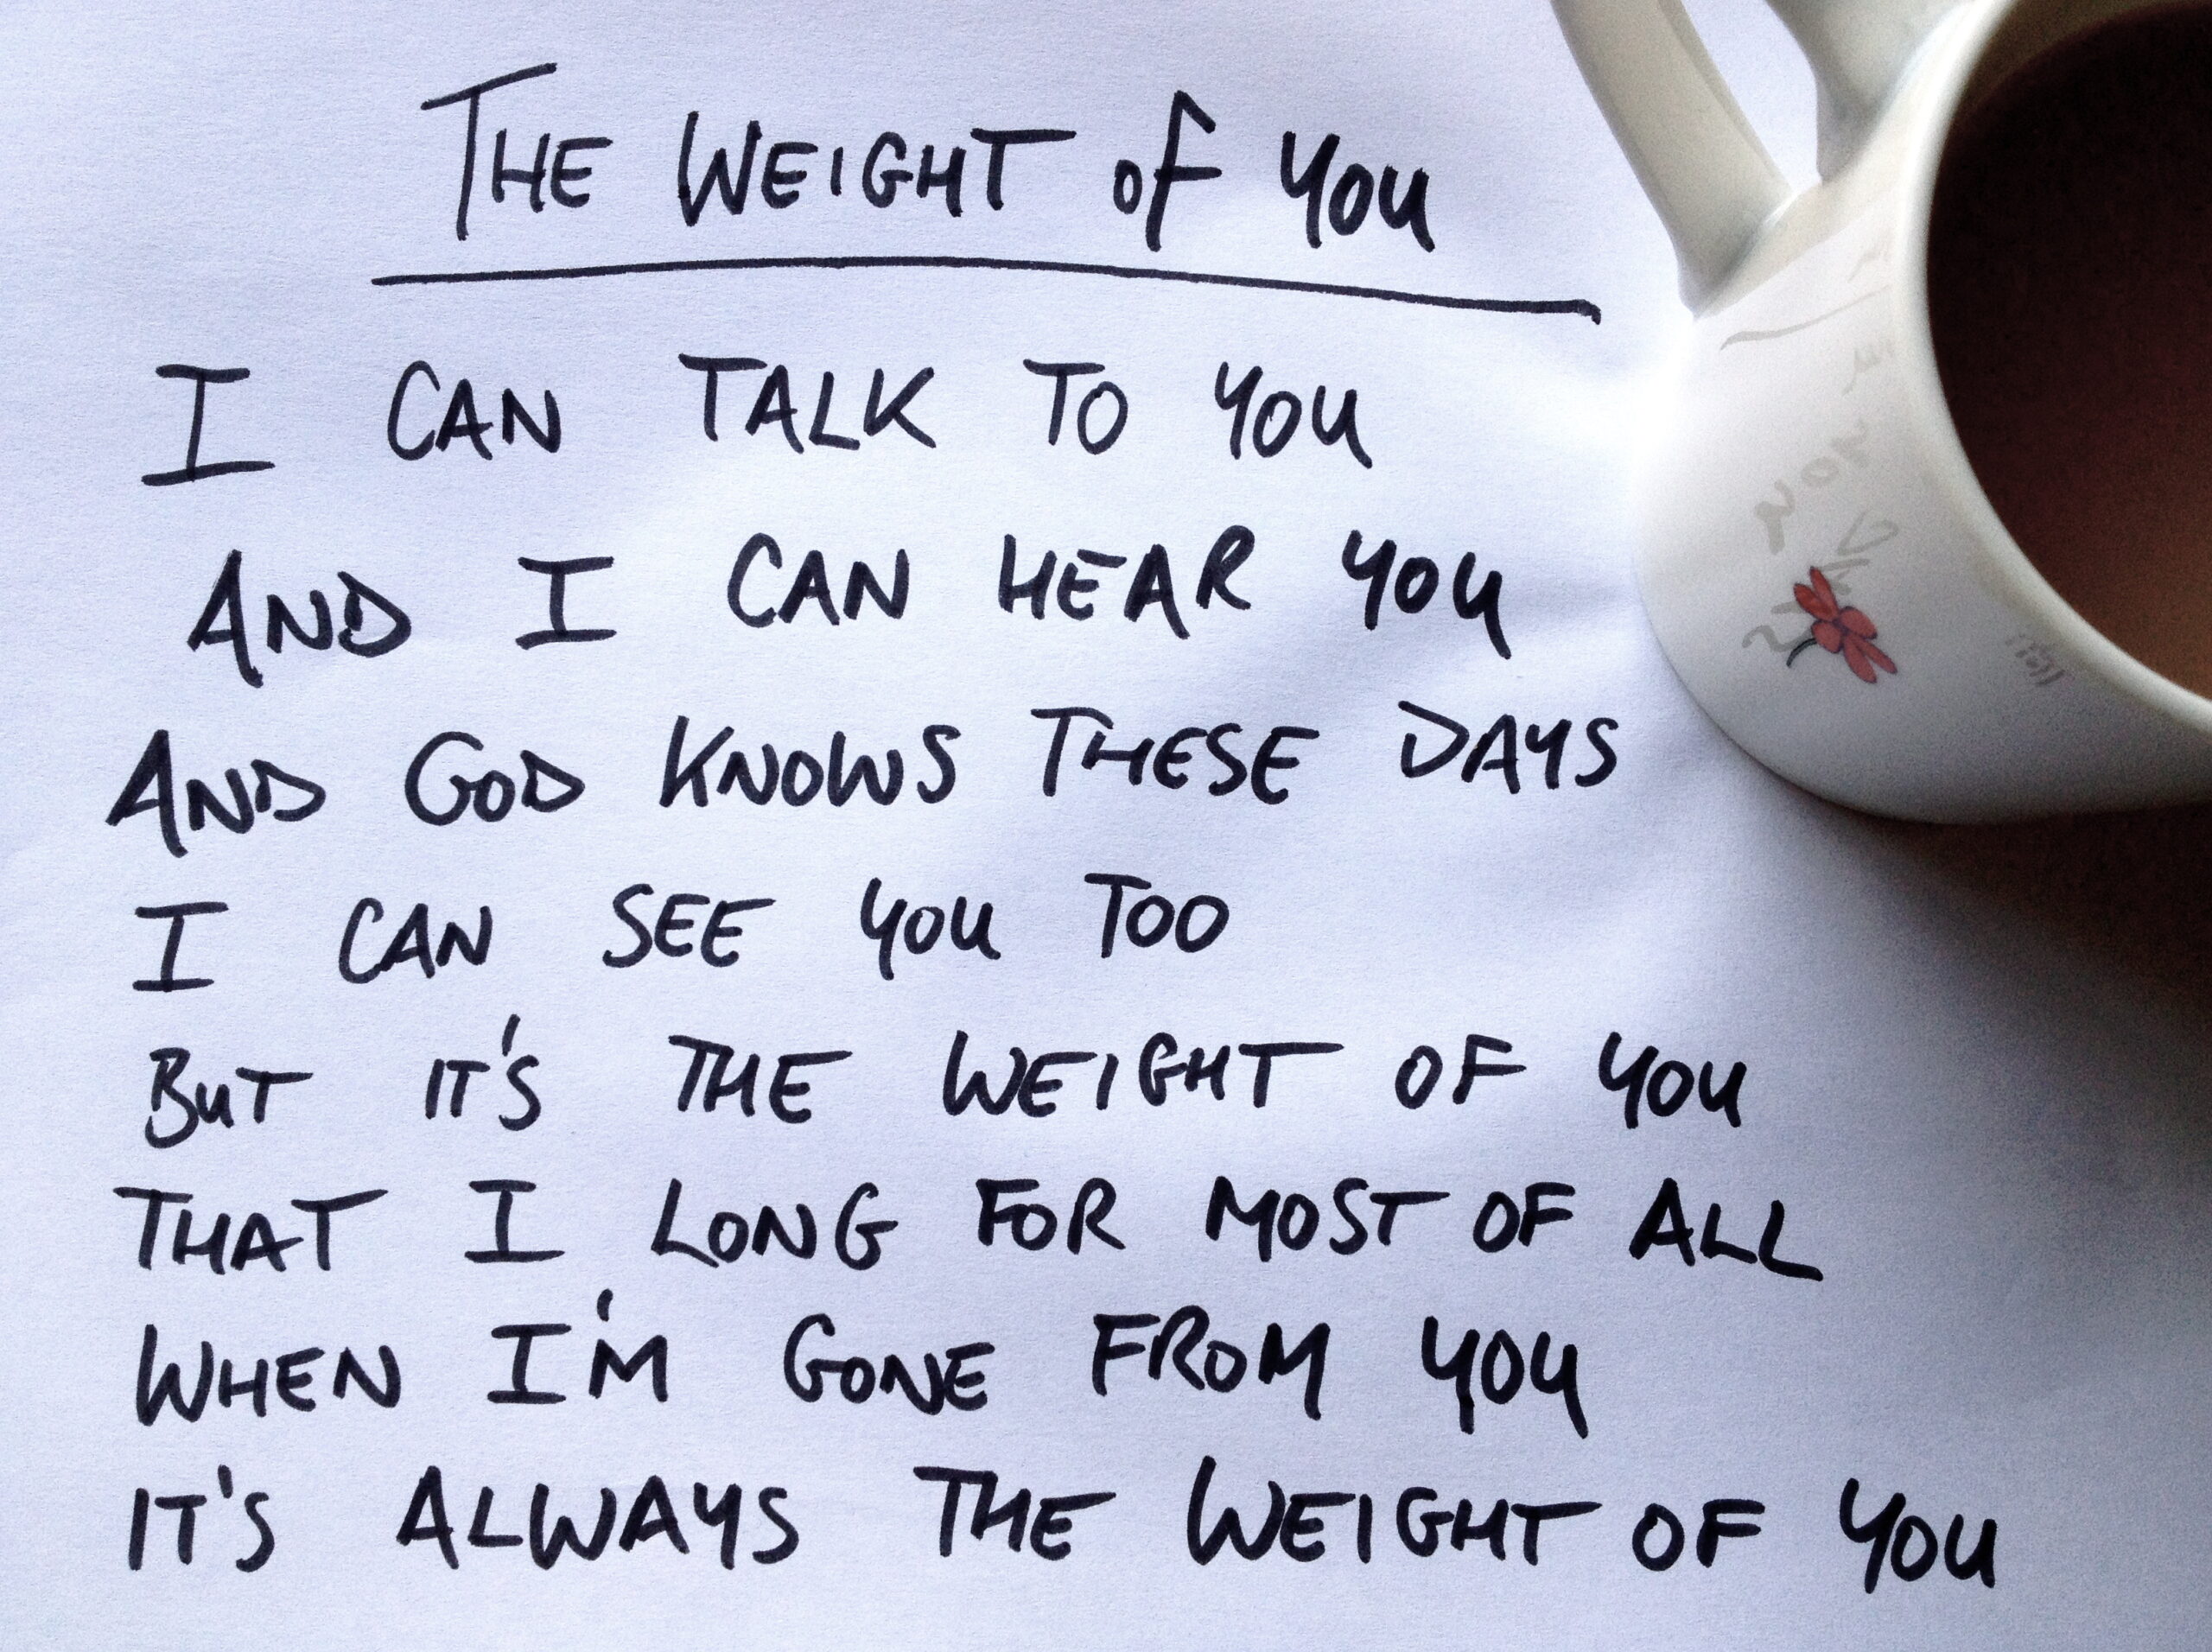 THE WEIGHT OF YOU
I CAN TALK TO YOU
AND I CAN HEAR YOU
AND GOD KNOWS THESE DAYS
I CAN SEE YOU TOO
BUT IT'S THE WEIGHT OF YOU
THAT I LONG FOR MOST OF ALL
WHEN I'M GONE FROM YOU
IT'S ALWAYS THE WEIGHT OF YOU